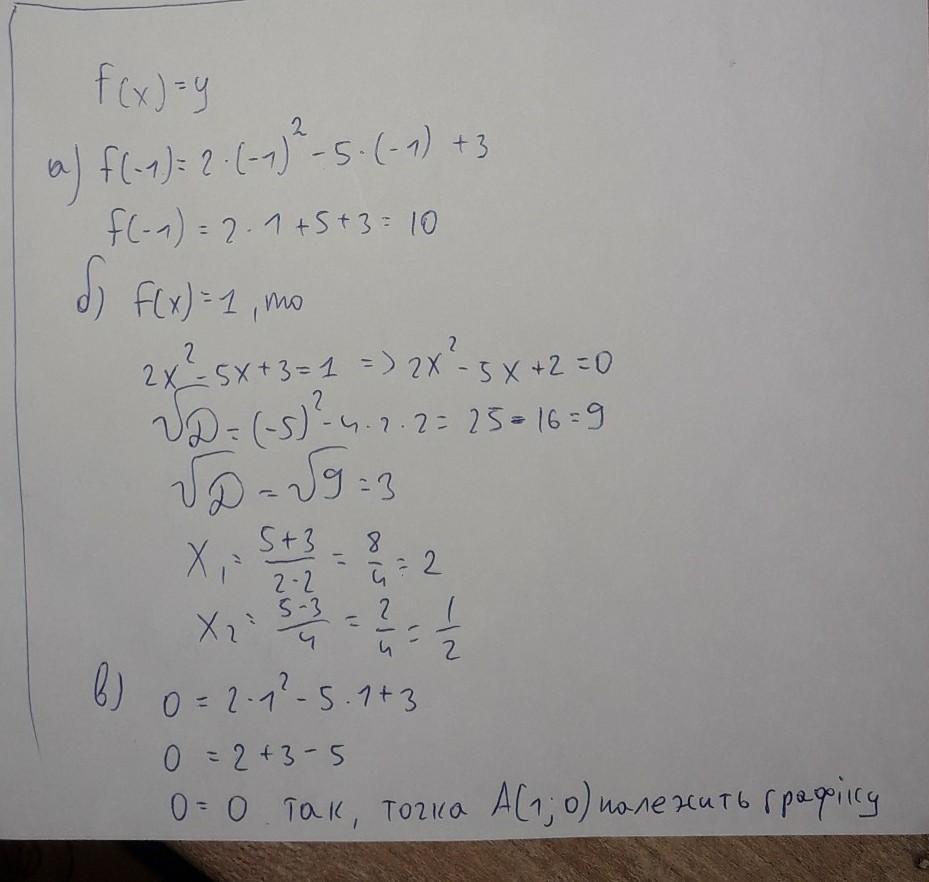 f(x)=y
а) f(-1)= 2·(-1)² - 5·(-1) +3
f(-1) = 2·1+5+3= 10
б) f(x)=1, то
2x² - 5x+3=1 => 2x² - 5x+2=0
√D = (-5)² - 4·2·2 = 25-16=9
√D = √9 = 3
x₁ = (5+3)/(2·2) = 8/4 = 2
x₂ = (5-3)/4 = 2/4 = 1/2
в) 0 = 2·1² - 5·1+3
0 = 2+3-5
0= 0 так, точка A(1;0) належить графіку